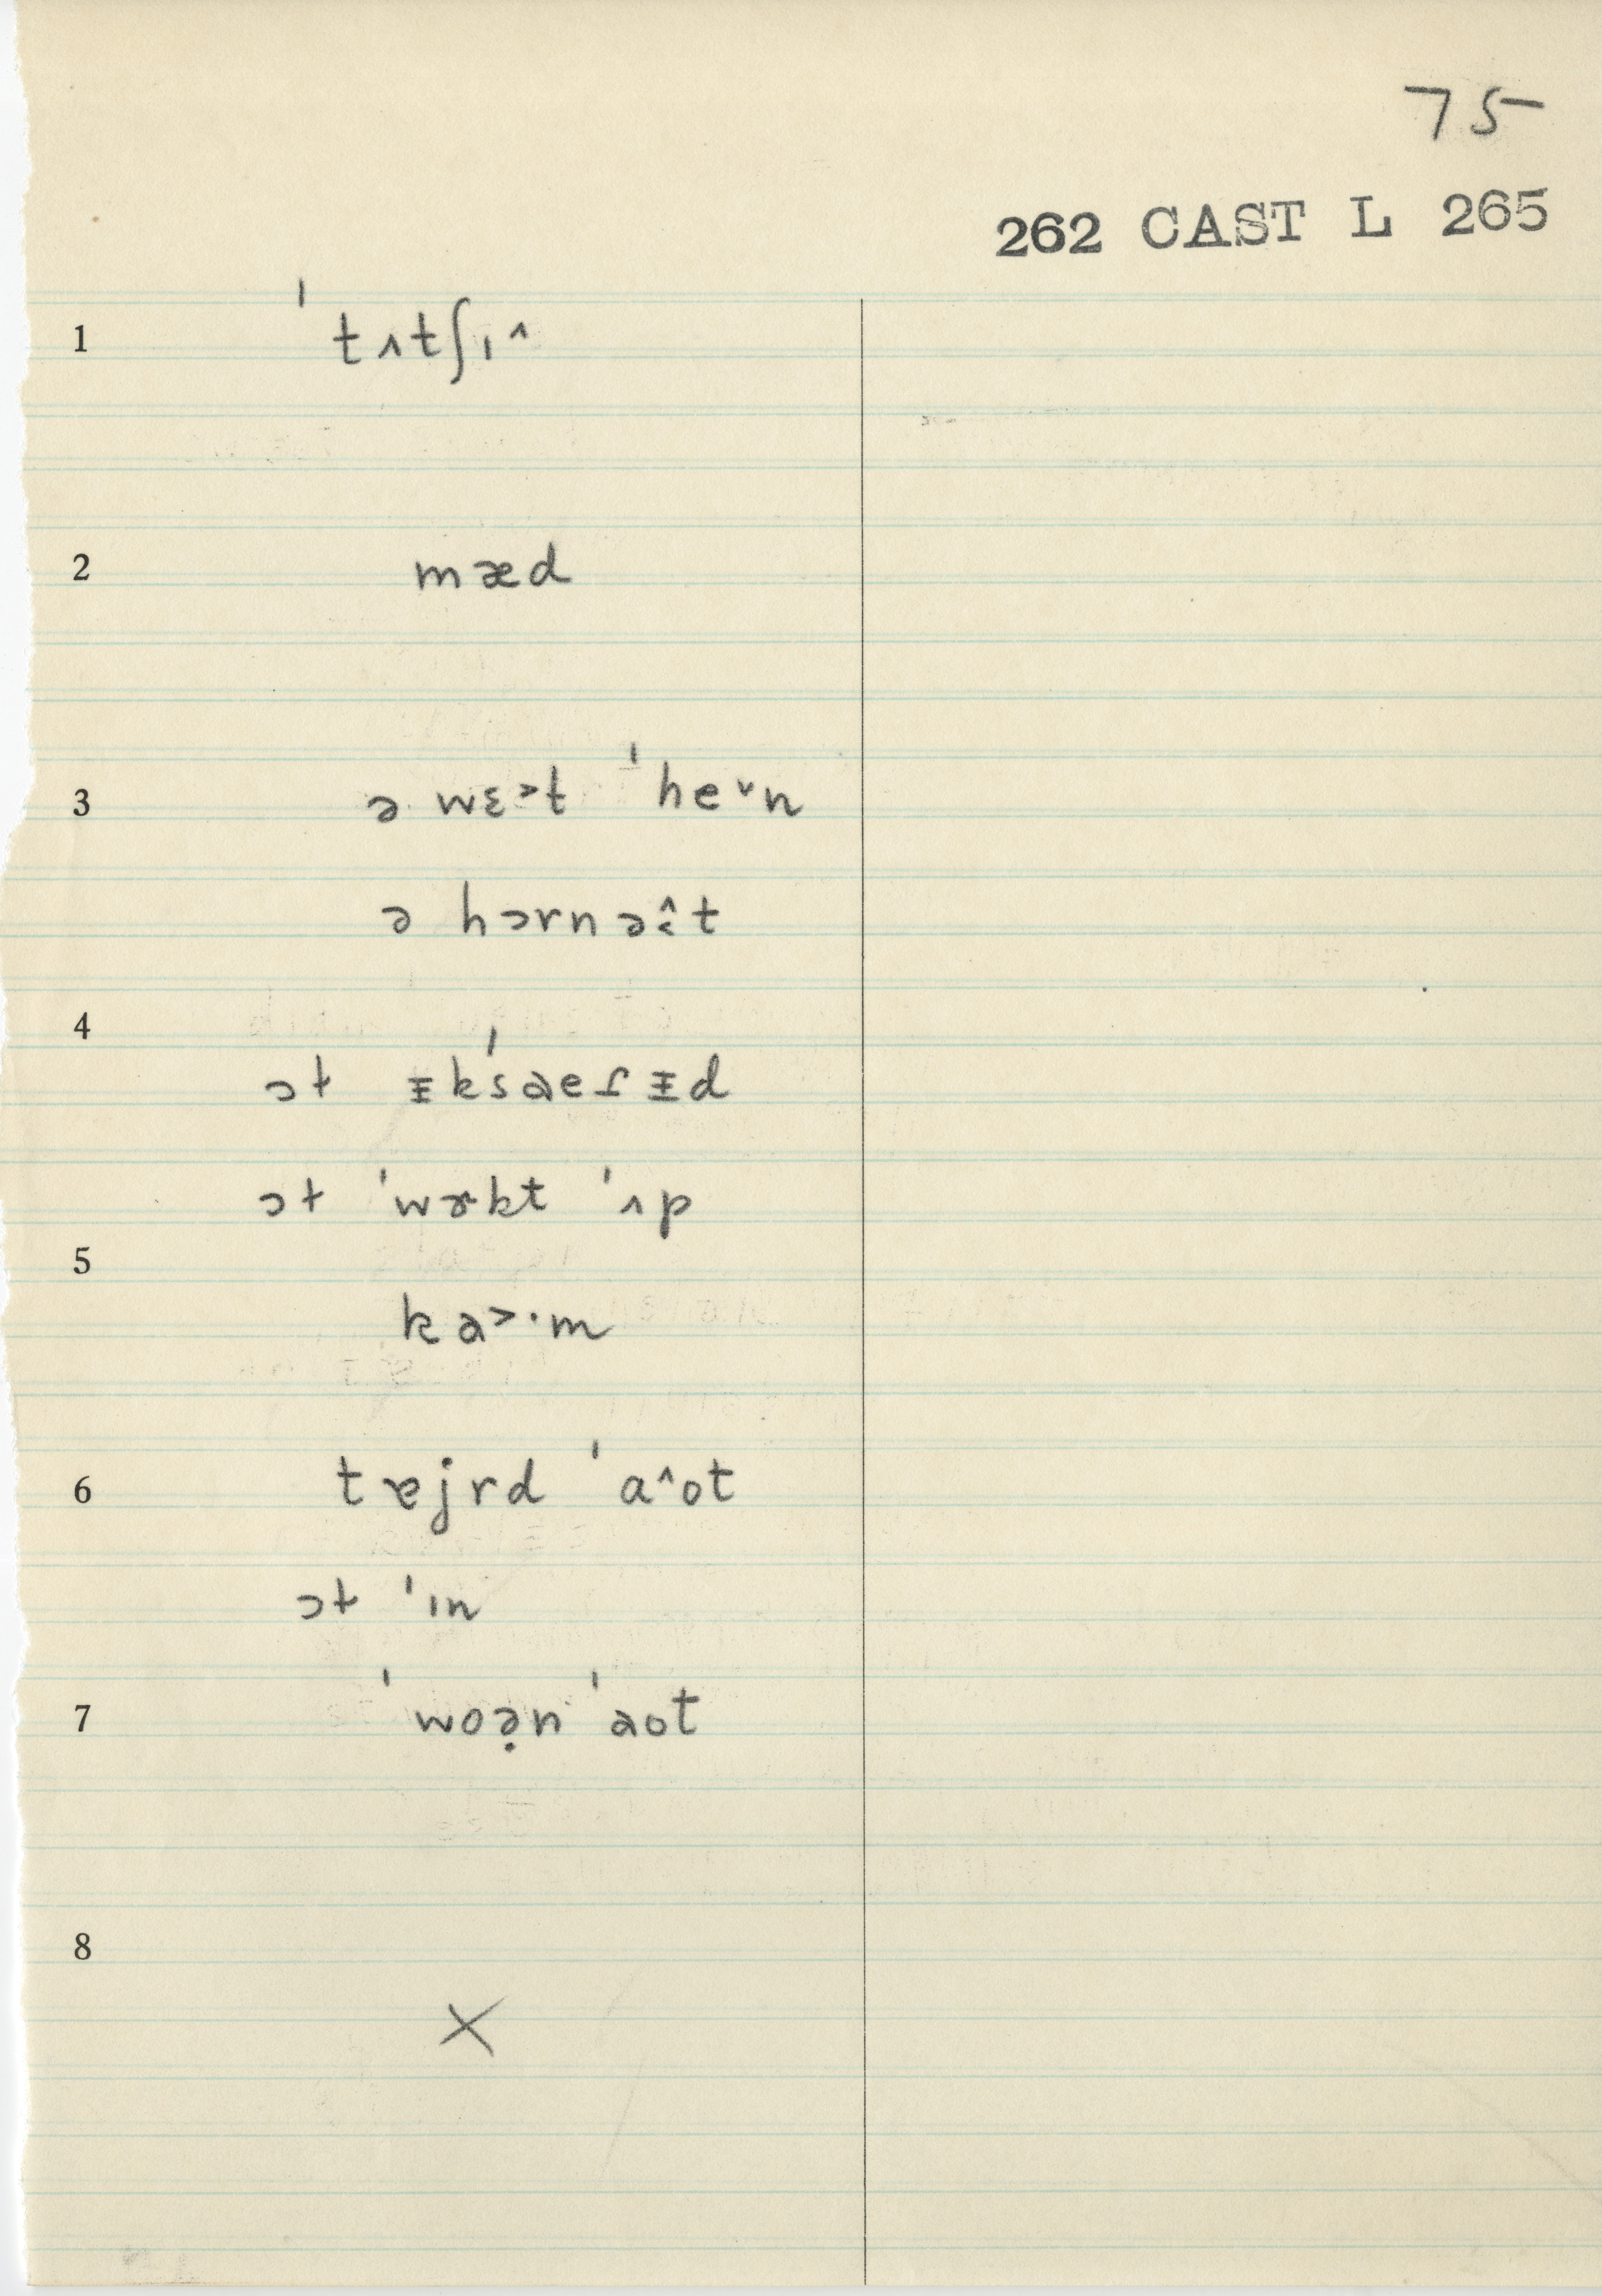 75
262 CAST L 265
1 ˈtʌtʃɪ^
2 mæd
3 ə wɛ>t ˈhe˅n
ə hɔrnə^t
4
ɔt ᵻkˈsaeɾᵻd
ɔt ˈwɚkt ˈʌp
5
ka>·m
6 tɐjrd ˈa^ot
ɔt ˈɪn
7 ˈwoə̣n ˈaot
8
X